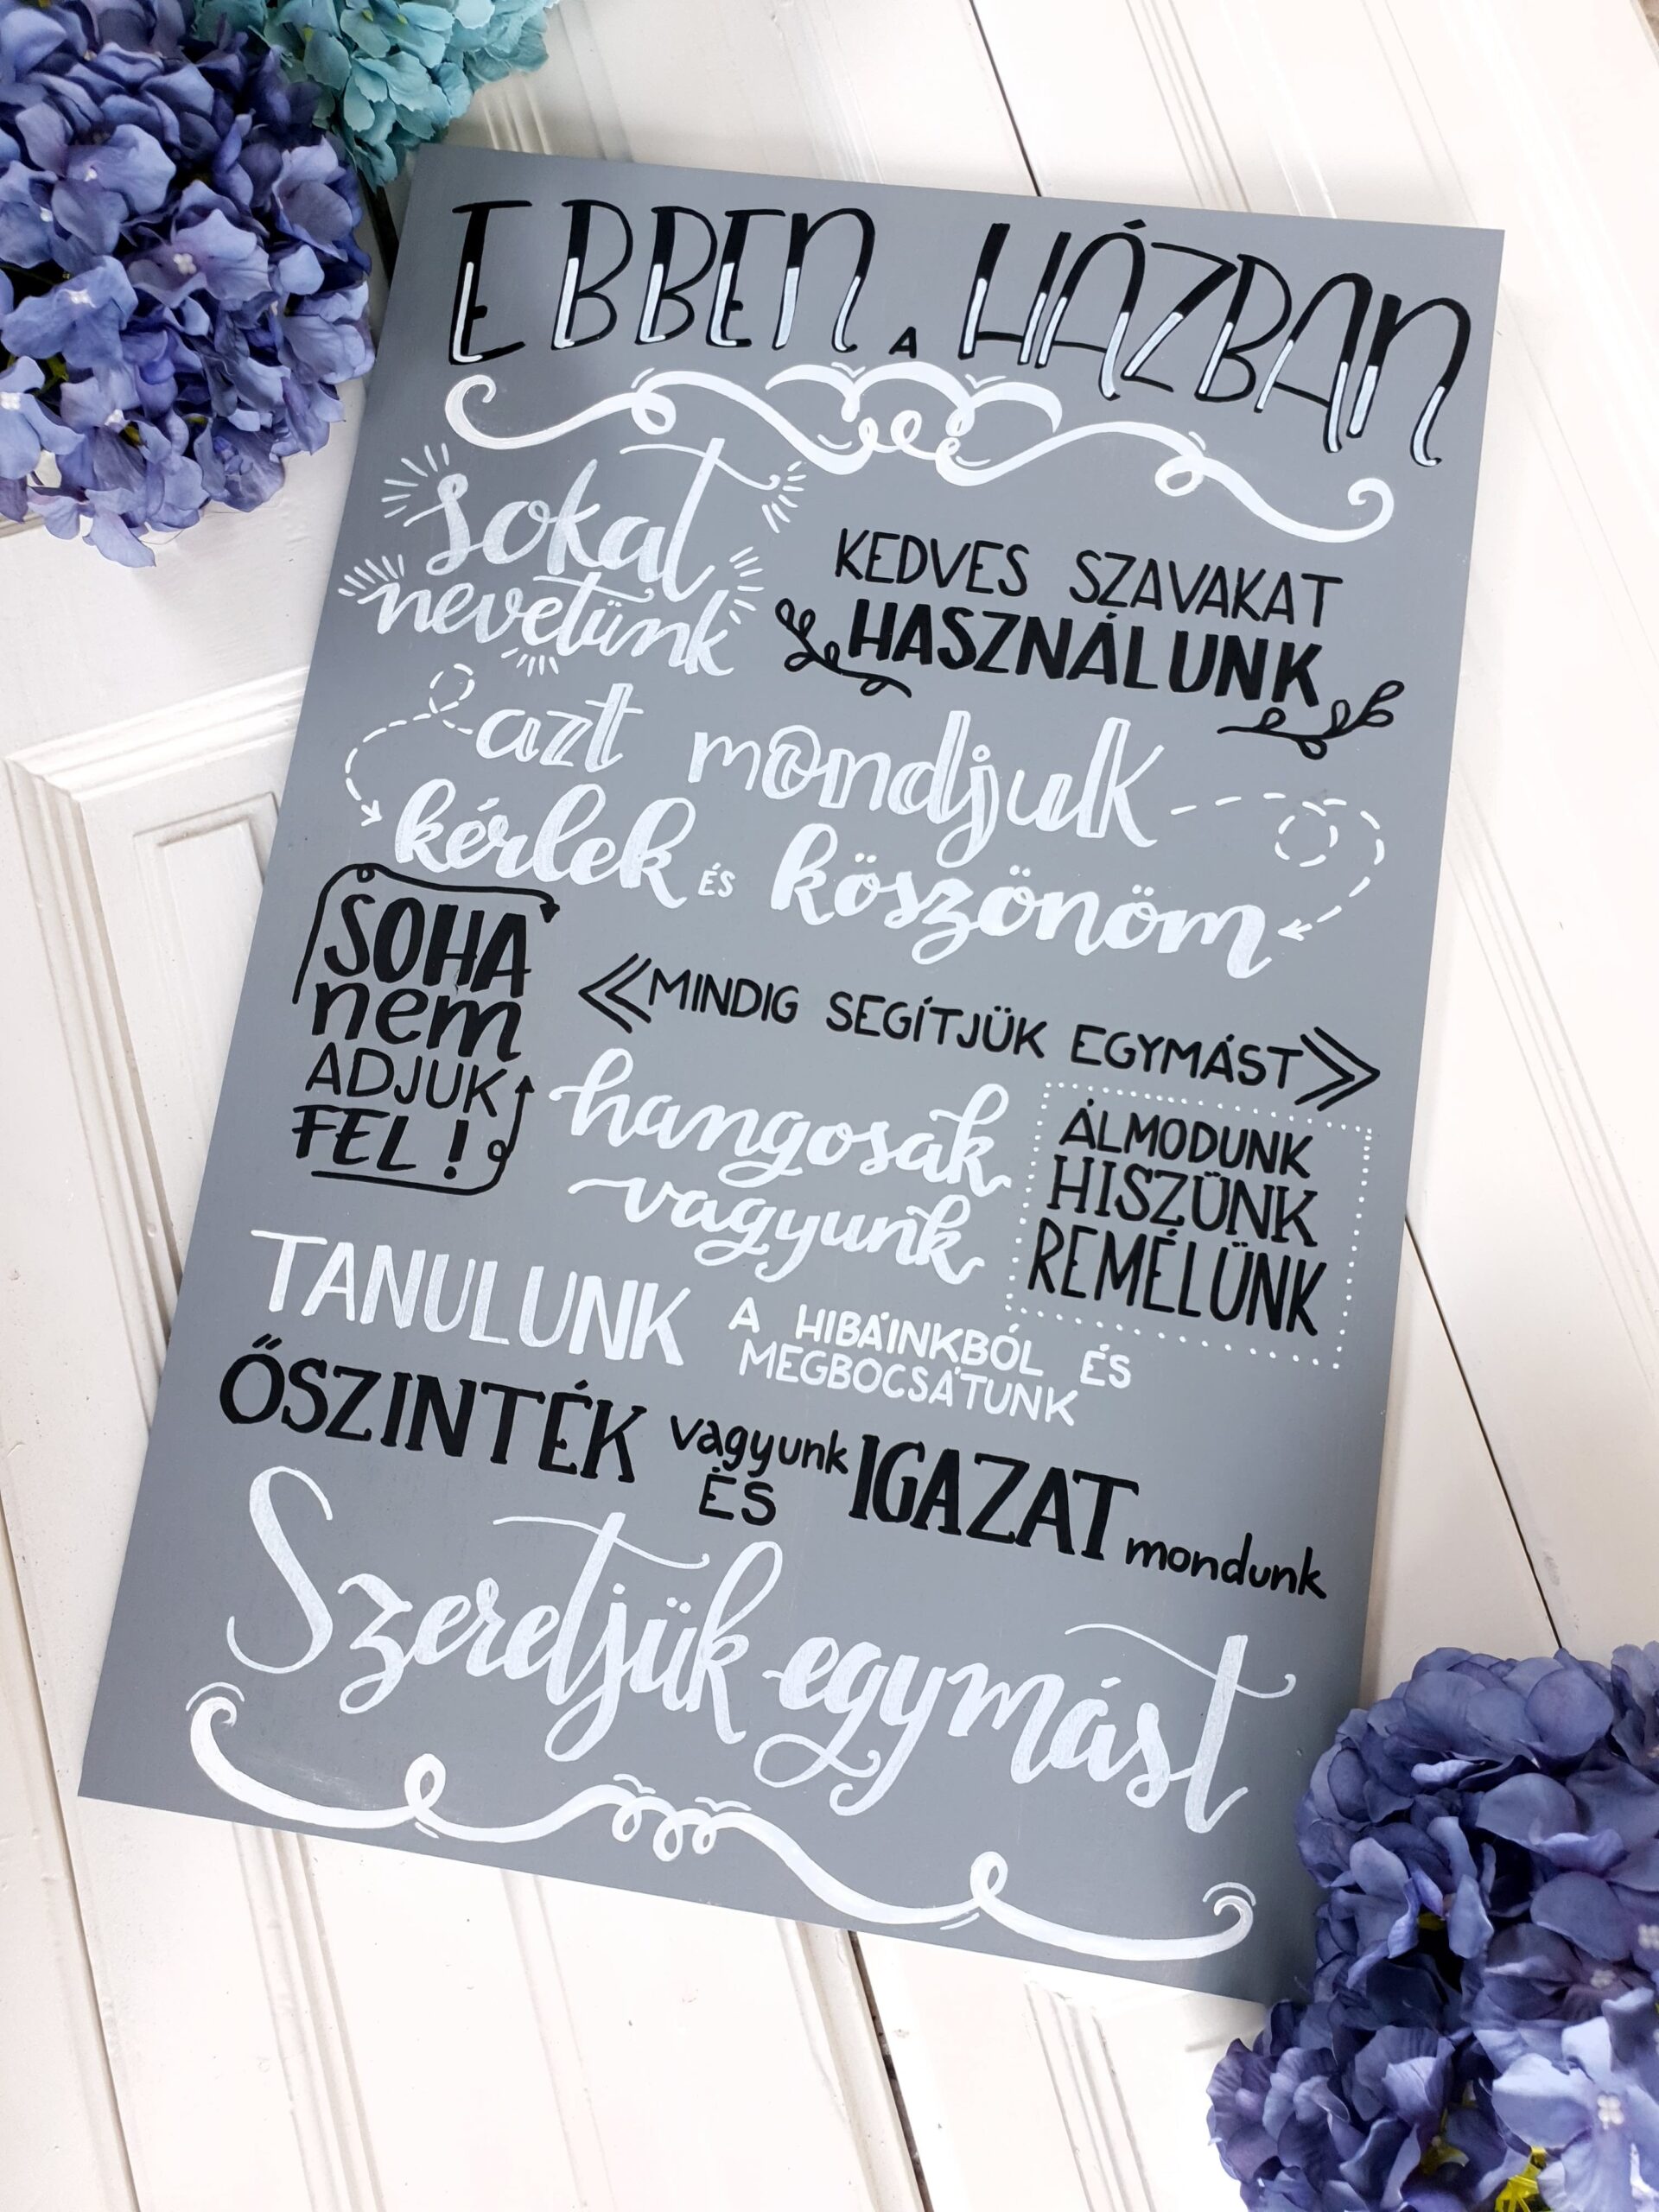 EBBEN A HÁZBAN
sokat
nevetünk
KEDVES SZAVAKAT
HASZNÁLUNK
azt mondjuk
kérlek ÉS köszönöm
SOHA
nem
ADJUK
FEL!
MINDIG SEGÍTJÜK EGYMÁST
hangosak
vagyunk
ÁLMODUNK
HISZÜNK
REMÉLÜNK
TANULUNK A HIBÁINKBÓL ÉS
MEGBOCSÁTUNK
ŐSZINTÉK vagyunk
ÉS IGAZAT mondunk
Szeretjük egymást